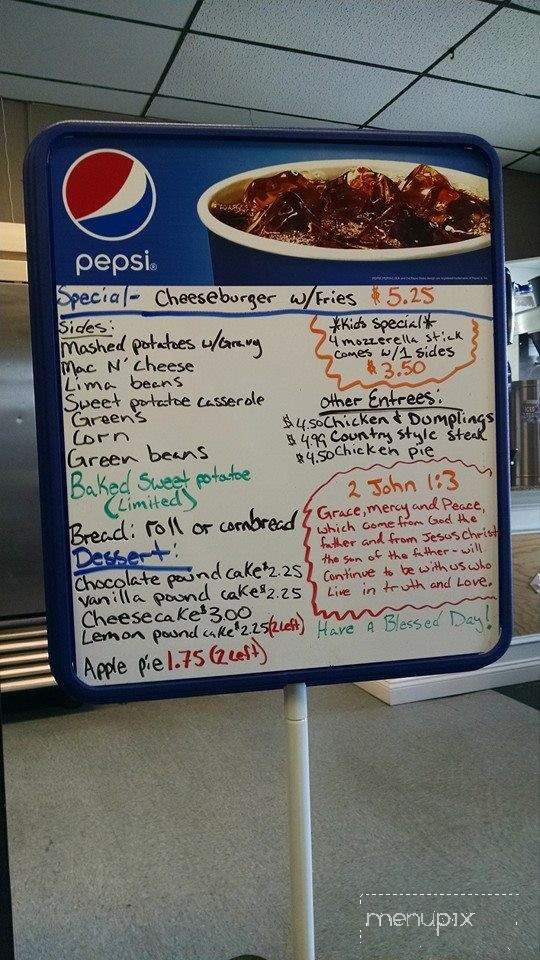 pepsi®
Special- Cheeseburger w/Fries $5.25
Sides:
Mashed potatoes w/Gravy
Mac N' Cheese
Lima beans
Sweet potatoe casserole
Greens
Corn
Green beans
Baked Sweet potatoe
(Limited)
Bread: roll or cornbread
Dessert:
Chocolate pound cake $2.25
Vanilla pound cake $2.25
Cheesecake $3.00
Lemon pound cake $2.25 (2 left)
Apple pie 1.75 (2 left)
*Kids Special*
4 mozzerella stick
comes w/1 sides
$3.50
Other Entrees:
$4.50 Chicken & Dumplings
$4.99 Country style steak
$4.50 Chicken pie
2 John 1:3
Grace, mercy and Peace,
which come from God the
father and from Jesus Christ
the son of the father - will
continue to be with us who
Live in truth and Love.
Have A Blessed Day!
menupix